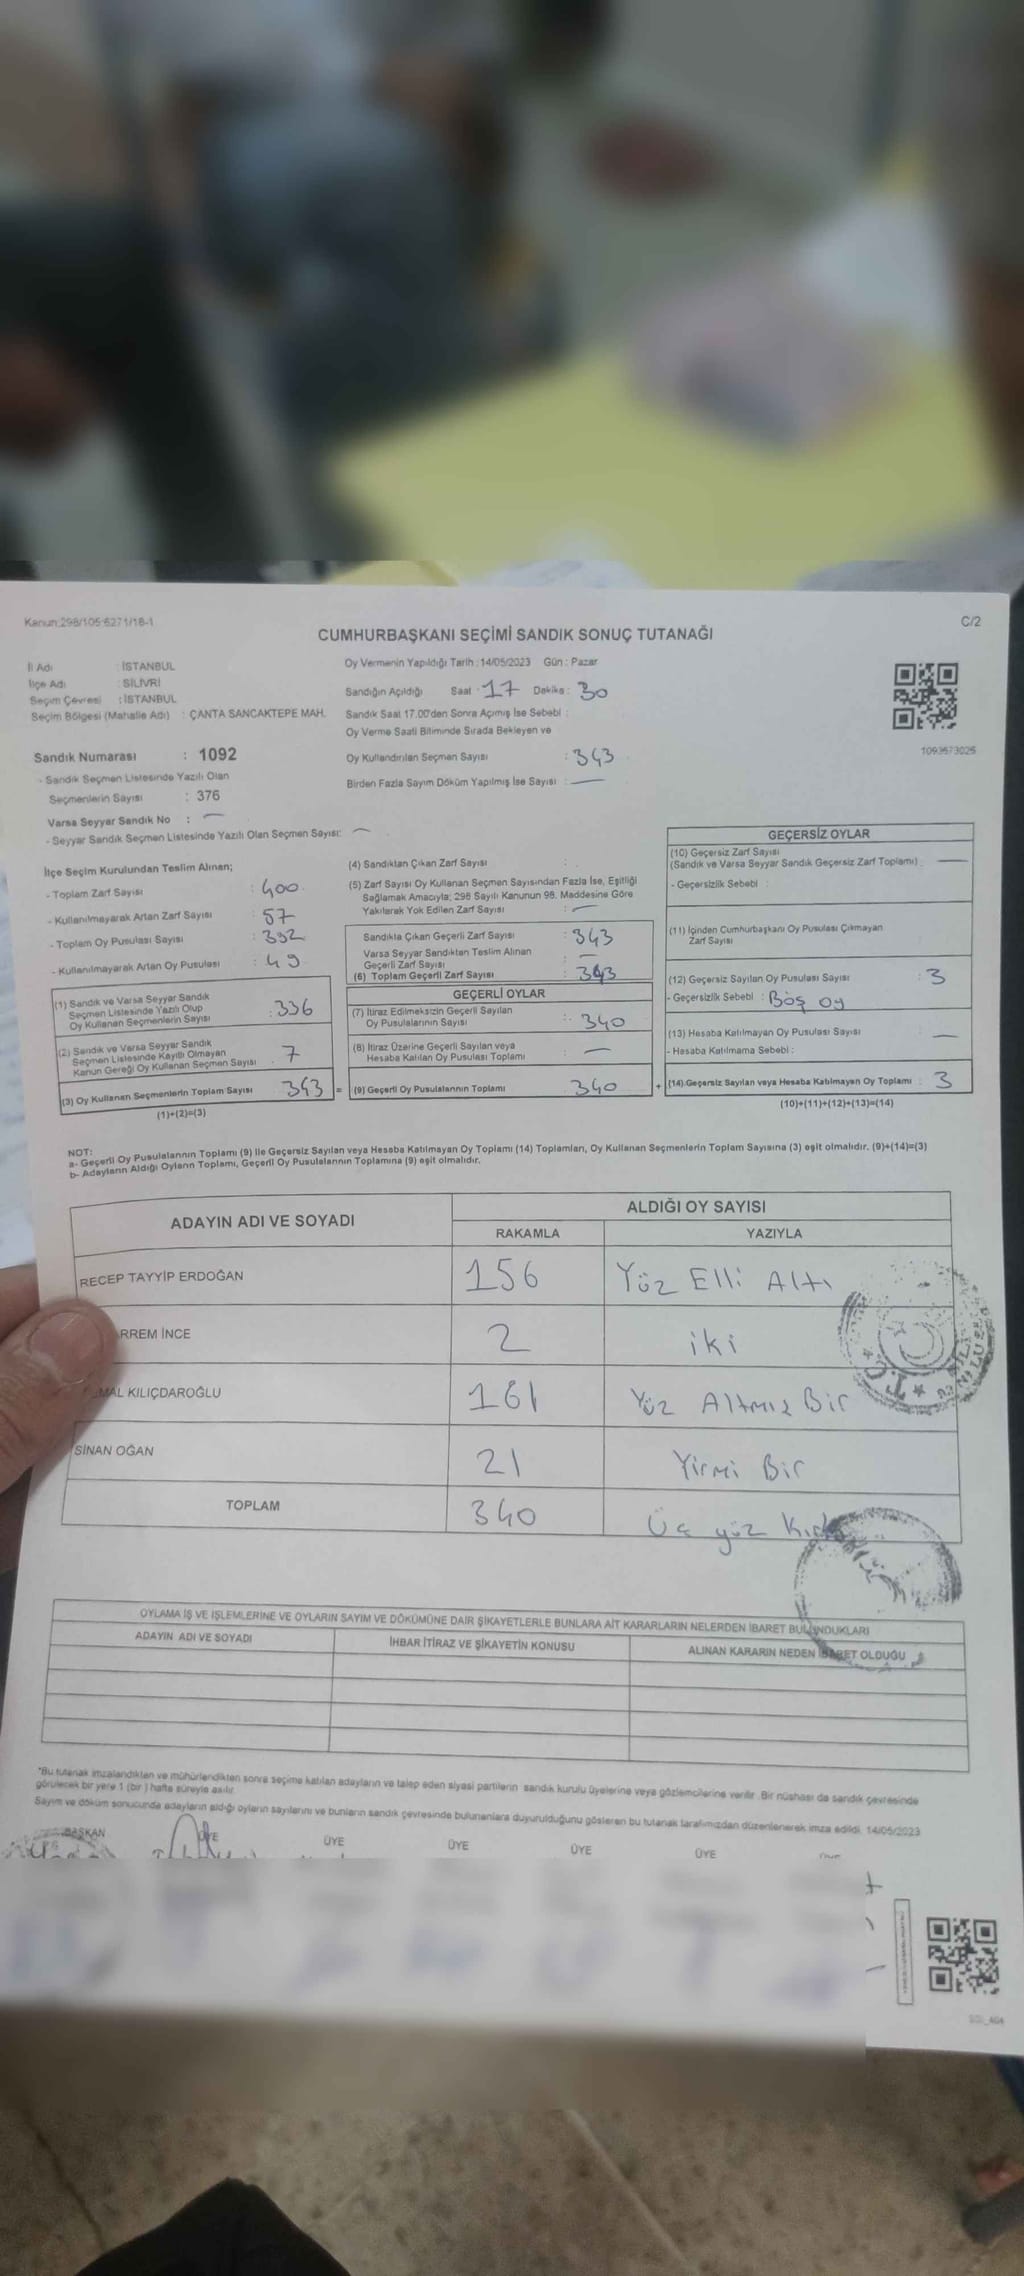 Kanun:298/105-6271/18-1
C/2
CUMHURBAŞKANI SEÇİMİ SANDIK SONUÇ TUTANAĞI
İl Adı : İSTANBUL
İlçe Adı : SİLİVRİ
Seçim Çevresi : İSTANBUL
Seçim Bölgesi (Mahalle Adı) : ÇANTA SANCAKTEPE MAH.
Oy Vermenin Yapıldığı Tarih : 14/05/2023 Gün : Pazar
Sandığın Açıldığı Saat : 17 Dakika : 30
Sandık Saat 17.00'den Sonra Açmış İse Sebebi :
Oy Verme Saati Bitiminde Sırada Bekleyen ve
Oy Kullandırılan Seçmen Sayısı : 343
Birden Fazla Sayım Döküm Yapılmış İse Sayısı : —
1093573025
Sandık Numarası : 1092
- Sandık Seçmen Listesinde Yazılı Olan
Seçmenlerin Sayısı : 376
Varsa Seyyar Sandık No : —
- Seyyar Sandık Seçmen Listesinde Yazılı Olan Seçmen Sayısı: —
İlçe Seçim Kurulundan Teslim Alınan;
- Toplam Zarf Sayısı : 400
- Kullanılmayarak Artan Zarf Sayısı : 57
- Toplam Oy Pusulası Sayısı : 392
- Kullanılmayarak Artan Oy Pusulası : 49
(1) Sandık ve Varsa Seyyar Sandık
Seçmen Listesinde Yazılı Olup
Oy Kullanan Seçmenlerin Sayısı : 336
(2) Sandık ve Varsa Seyyar Sandık
Seçmen Listesinde Kayıtlı Olmayan
Kanun Gereği Oy Kullanan Seçmen Sayısı : 7
(3) Oy Kullanan Seçmenlerin Toplam Sayısı : 343 =
(1)+(2)=(3)
(4) Sandıktan Çıkan Zarf Sayısı :
(5) Zarf Sayısı Oy Kullanan Seçmen Sayısından Fazla İse, Eşitliği
Sağlamak Amacıyla; 298 Sayılı Kanunun 98. Maddesine Göre
Yakılarak Yok Edilen Zarf Sayısı : —
Sandıkta Çıkan Geçerli Zarf Sayısı : 343
Varsa Seyyar Sandıktan Teslim Alınan
Geçerli Zarf Sayısı : —
(6) Toplam Geçerli Zarf Sayısı : 343
GEÇERLİ OYLAR
(7) İtiraz Edilmeksizin Geçerli Sayılan
Oy Pusulalarının Sayısı : 340
(8) İtiraz Üzerine Geçerli Sayılan veya
Hesaba Katılan Oy Pusulası Toplamı : —
(9) Geçerli Oy Pusulalarının Toplamı : 340 +
GEÇERSİZ OYLAR
(10) Geçersiz Zarf Sayısı
(Sandık ve Varsa Seyyar Sandık Geçersiz Zarf Toplamı) : —
- Geçersizlik Sebebi :
(11) İçinden Cumhurbaşkanı Oy Pusulası Çıkmayan
Zarf Sayısı
(12) Geçersiz Sayılan Oy Pusulası Sayısı : 3
- Geçersizlik Sebebi : Boş oy
(13) Hesaba Katılmayan Oy Pusulası Sayısı : —
- Hesaba Katılmama Sebebi :
(14) Geçersiz Sayılan veya Hesaba Katılmayan Oy Toplamı : 3
(10)+(11)+(12)+(13)=(14)
NOT:
a- Geçerli Oy Pusulalarının Toplamı (9) ile Geçersiz Sayılan veya Hesaba Katılmayan Oy Toplamı (14) Toplamları, Oy Kullanan Seçmenlerin Toplam Sayısına (3) eşit olmalıdır. (9)+(14)=(3)
b- Adayların Aldığı Oyların Toplamı, Geçerli Oy Pusulalarının Toplamına (9) eşit olmalıdır.
ADAYIN ADI VE SOYADI ALDIĞI OY SAYISI
RAKAMLA YAZIYLA
RECEP TAYYİP ERDOĞAN 156 Yüz Elli Altı
RREM İNCE 2 iki
MAL KILIÇDAROĞLU 161 Yüz Altmış Bir
SİNAN OĞAN 21 Yirmi Bir
TOPLAM 340 Üç yüz Kırk
T.C.
OYLAMA İŞ VE İŞLEMLERİNE VE OYLARIN SAYIM VE DÖKÜMÜNE DAİR ŞİKAYETLERLE BUNLARA AİT KARARLARIN NELERDEN İBARET BULUNDUKLARI
ADAYIN ADI VE SOYADI İHBAR İTİRAZ VE ŞİKAYETİN KONUSU ALINAN KARARIN NEDEN İBARET OLDUĞU
*Bu tutanak imzalandıktan ve mühürlendikten sonra seçime katılan adayların ve talep eden siyasi partilerin sandık kurulu üyelerine veya gözlemcilerine verilir. Bir nüshası da sandık çevresinde
görülecek bir yere 1 (bir) hafta süreyle asılır.
Sayım ve döküm sonucunda adayların aldığı oyların sayılarını ve bunların sandık çevresinde bulunanlara duyurulduğunu gösteren bu tutanak tarafımızdan düzenlenerek imza edildi. 14/05/2023
BAŞKAN ÜYE ÜYE ÜYE ÜYE ÜYE